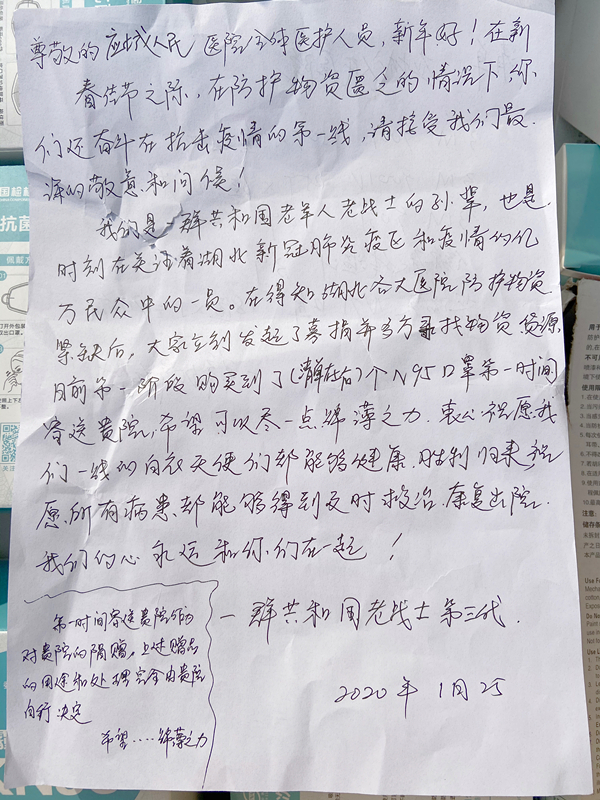 尊敬的应城人民医院全体医护人员,新年好!在新
春佳节之际,在防护物资匮乏的情况下,你
们还奋斗在抗击疫情的第一线,请接受我们最
深的敬意和问候!
我们是一群共和国老军人老战士的孙辈,也是
时刻在关注着湖北新冠肺炎疫区和疫情的亿
万民众中的一员。在得知湖北各大医院防护物资
紧缺后,大家立刻发起了募捐并多方寻找物资货源,
目前第一阶段购买到了()个N95口罩第一时间
寄送贵院,希望可以尽一点绵薄之力.衷心祝愿我
们一线的白衣天使们都能够健康.胜利归来祝
愿所有病患都能够得到及时救治.康复出院.
我们的心永远和你们在一起!
一群共和国老战士第三代.
2020年1月25
第一时间寄送贵院作为
对贵院的捐赠。上述赠品
的用途和处理完全由贵院
自行决定
希望....绵薄之力
抗菌
注意: